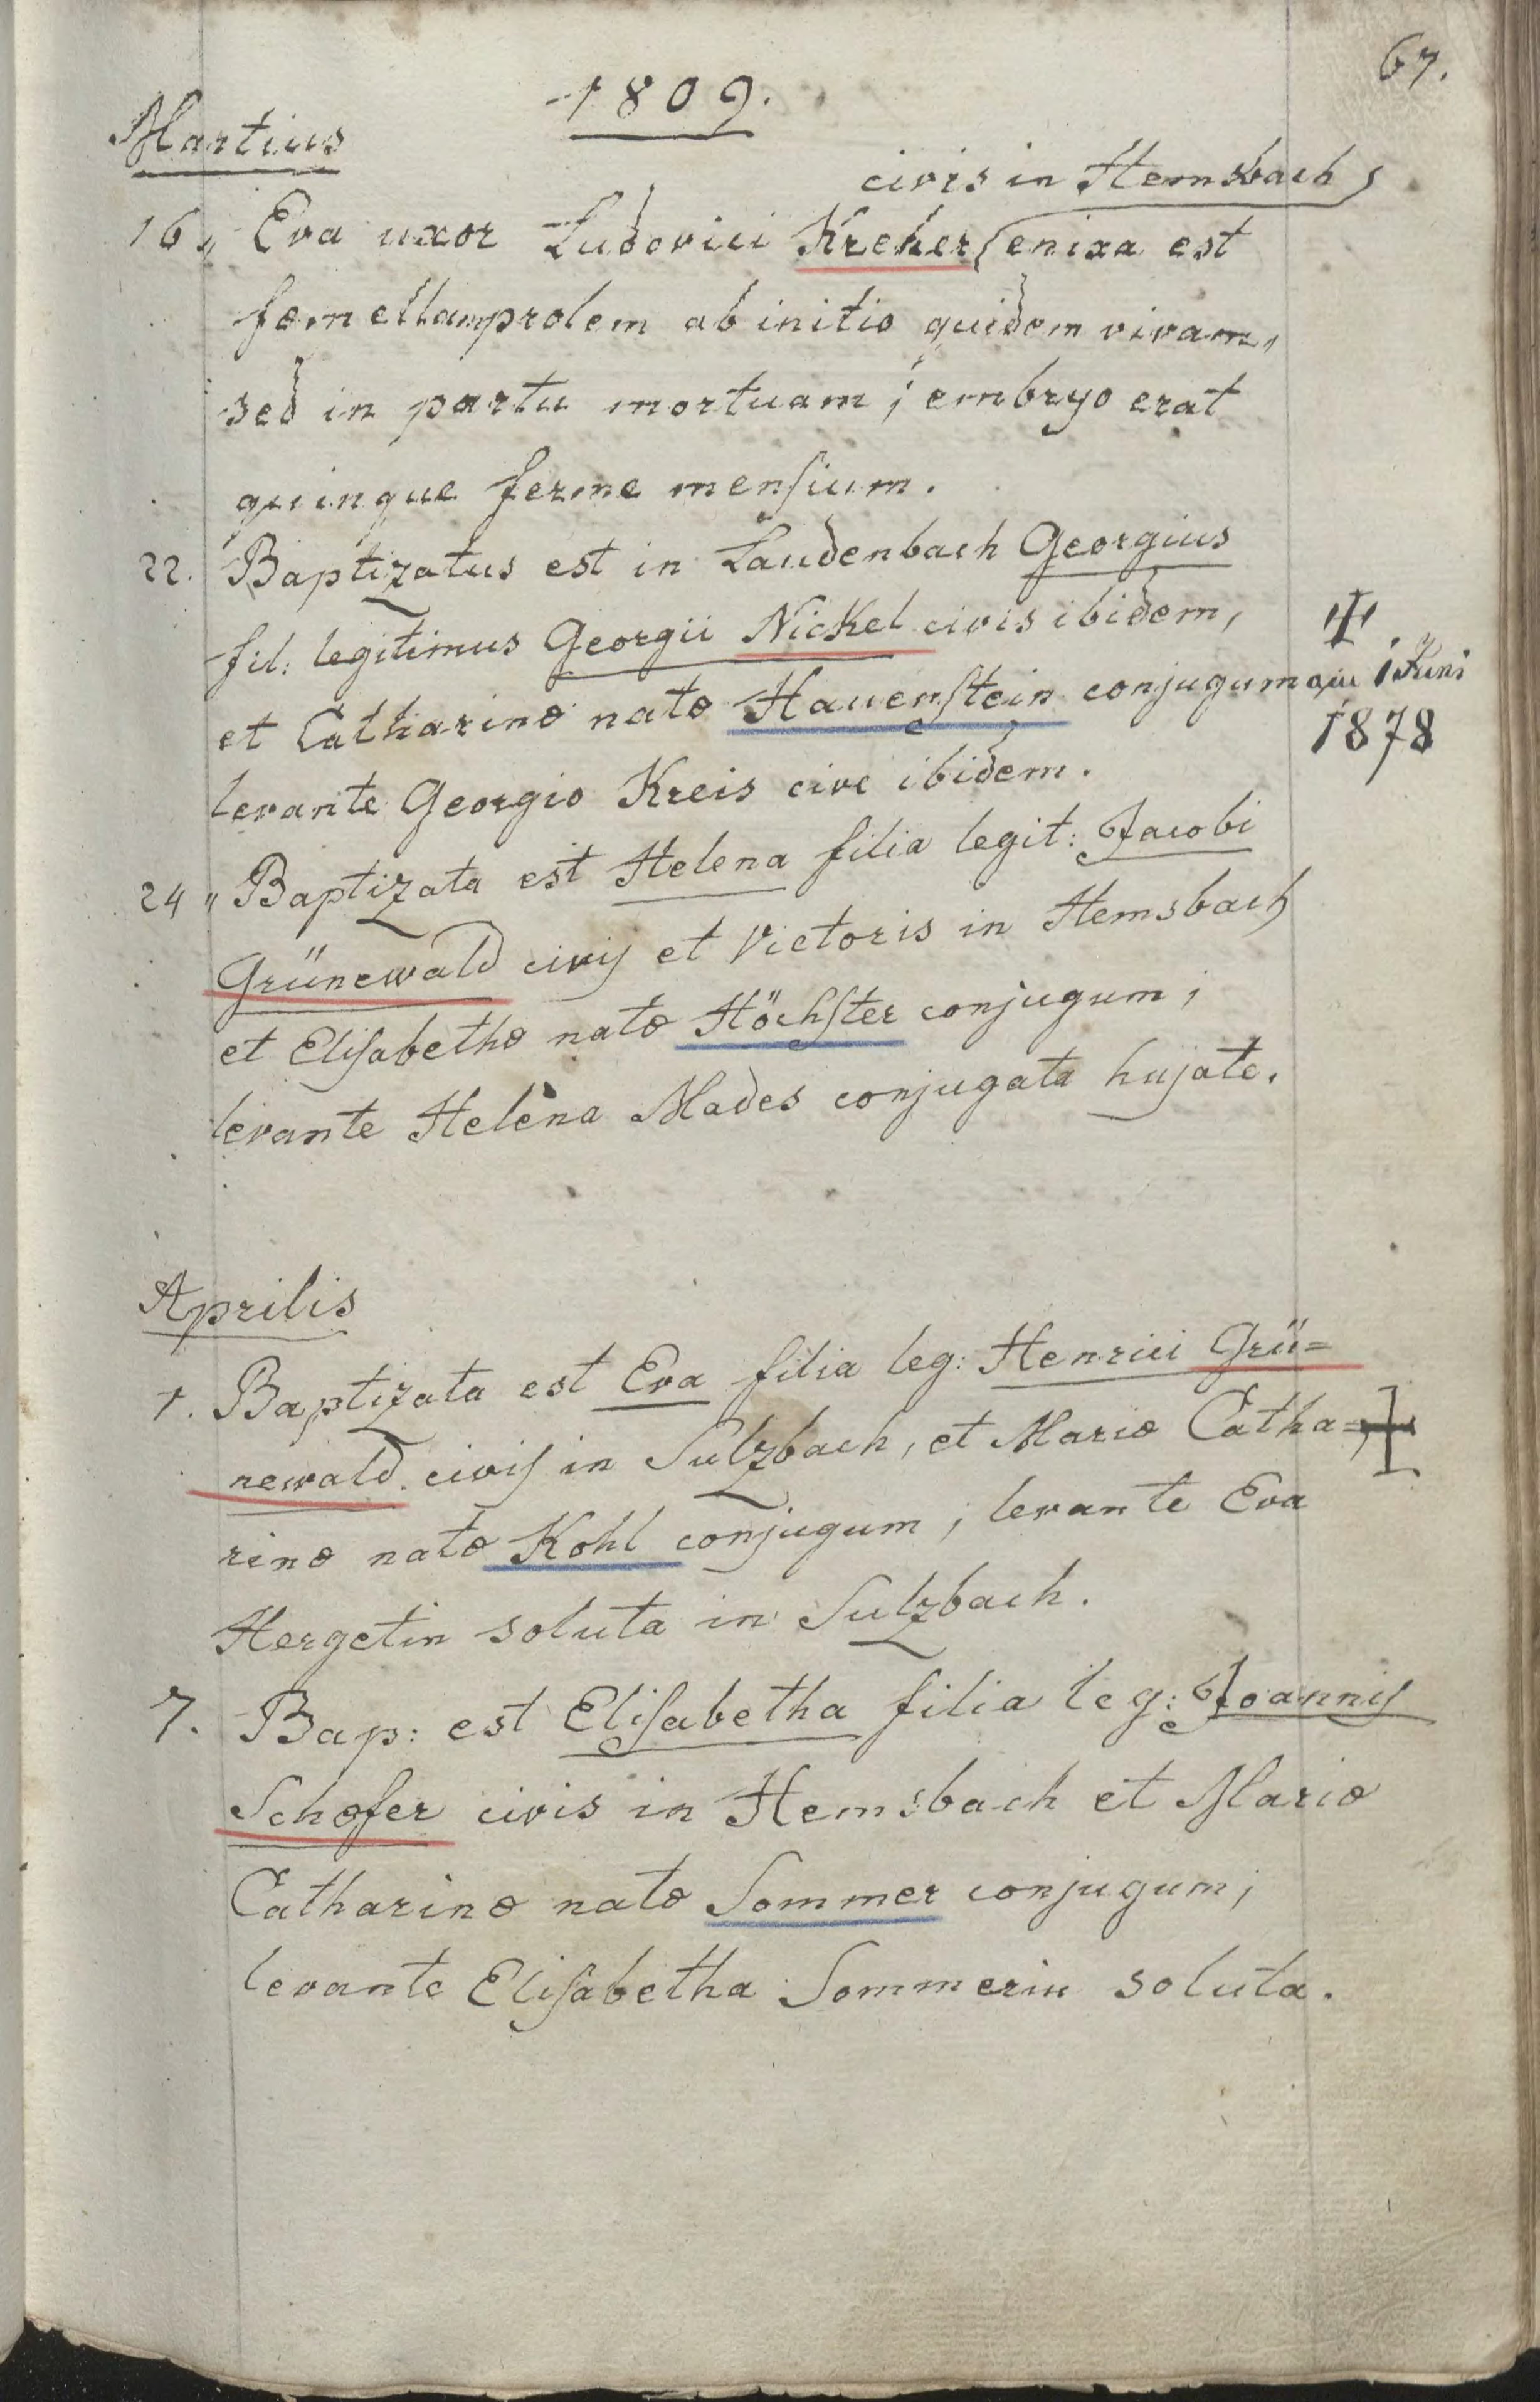 67.
1809.
Martius
civis in Hemsbach
16„ Eva uxor Ludovici Kreker enixa est
fœmellam prolem ab initio quidem vivam,
sed in partu mortuam; embryo erat
quinque ferme mensium.
22. Baptizatus est in Laudenbach Georgius
fil: legitimus Georgii Nickel civis ibidem,
et Catharinæ natæ Hauenstein conjugum
levante Georgio Kreis cive ibidem.
1 Juni
1878
24„ Baptizata est Helena filia legit: Jacobi
Grünewald civis et Victoris in Hemsbach
et Elisabethæ natæ Höchster conjugum;
levante Helena Mades conjugata hujate.
Aprilis
1. Baptizata est Eva filia leg: Henrici Grü=
newald civis in Sulzbach, et Mariæ Catha=
rinæ natæ Kohl conjugum; levante Eva
Hergetin soluta in Sulzbach.
7. Bap: est Elisabetha filia leg: Joannis
Schæfer civis in Hemsbach et Mariæ
Catharinæ natæ Sommer conjugum;
levante Elisabetha Sommerin soluta.